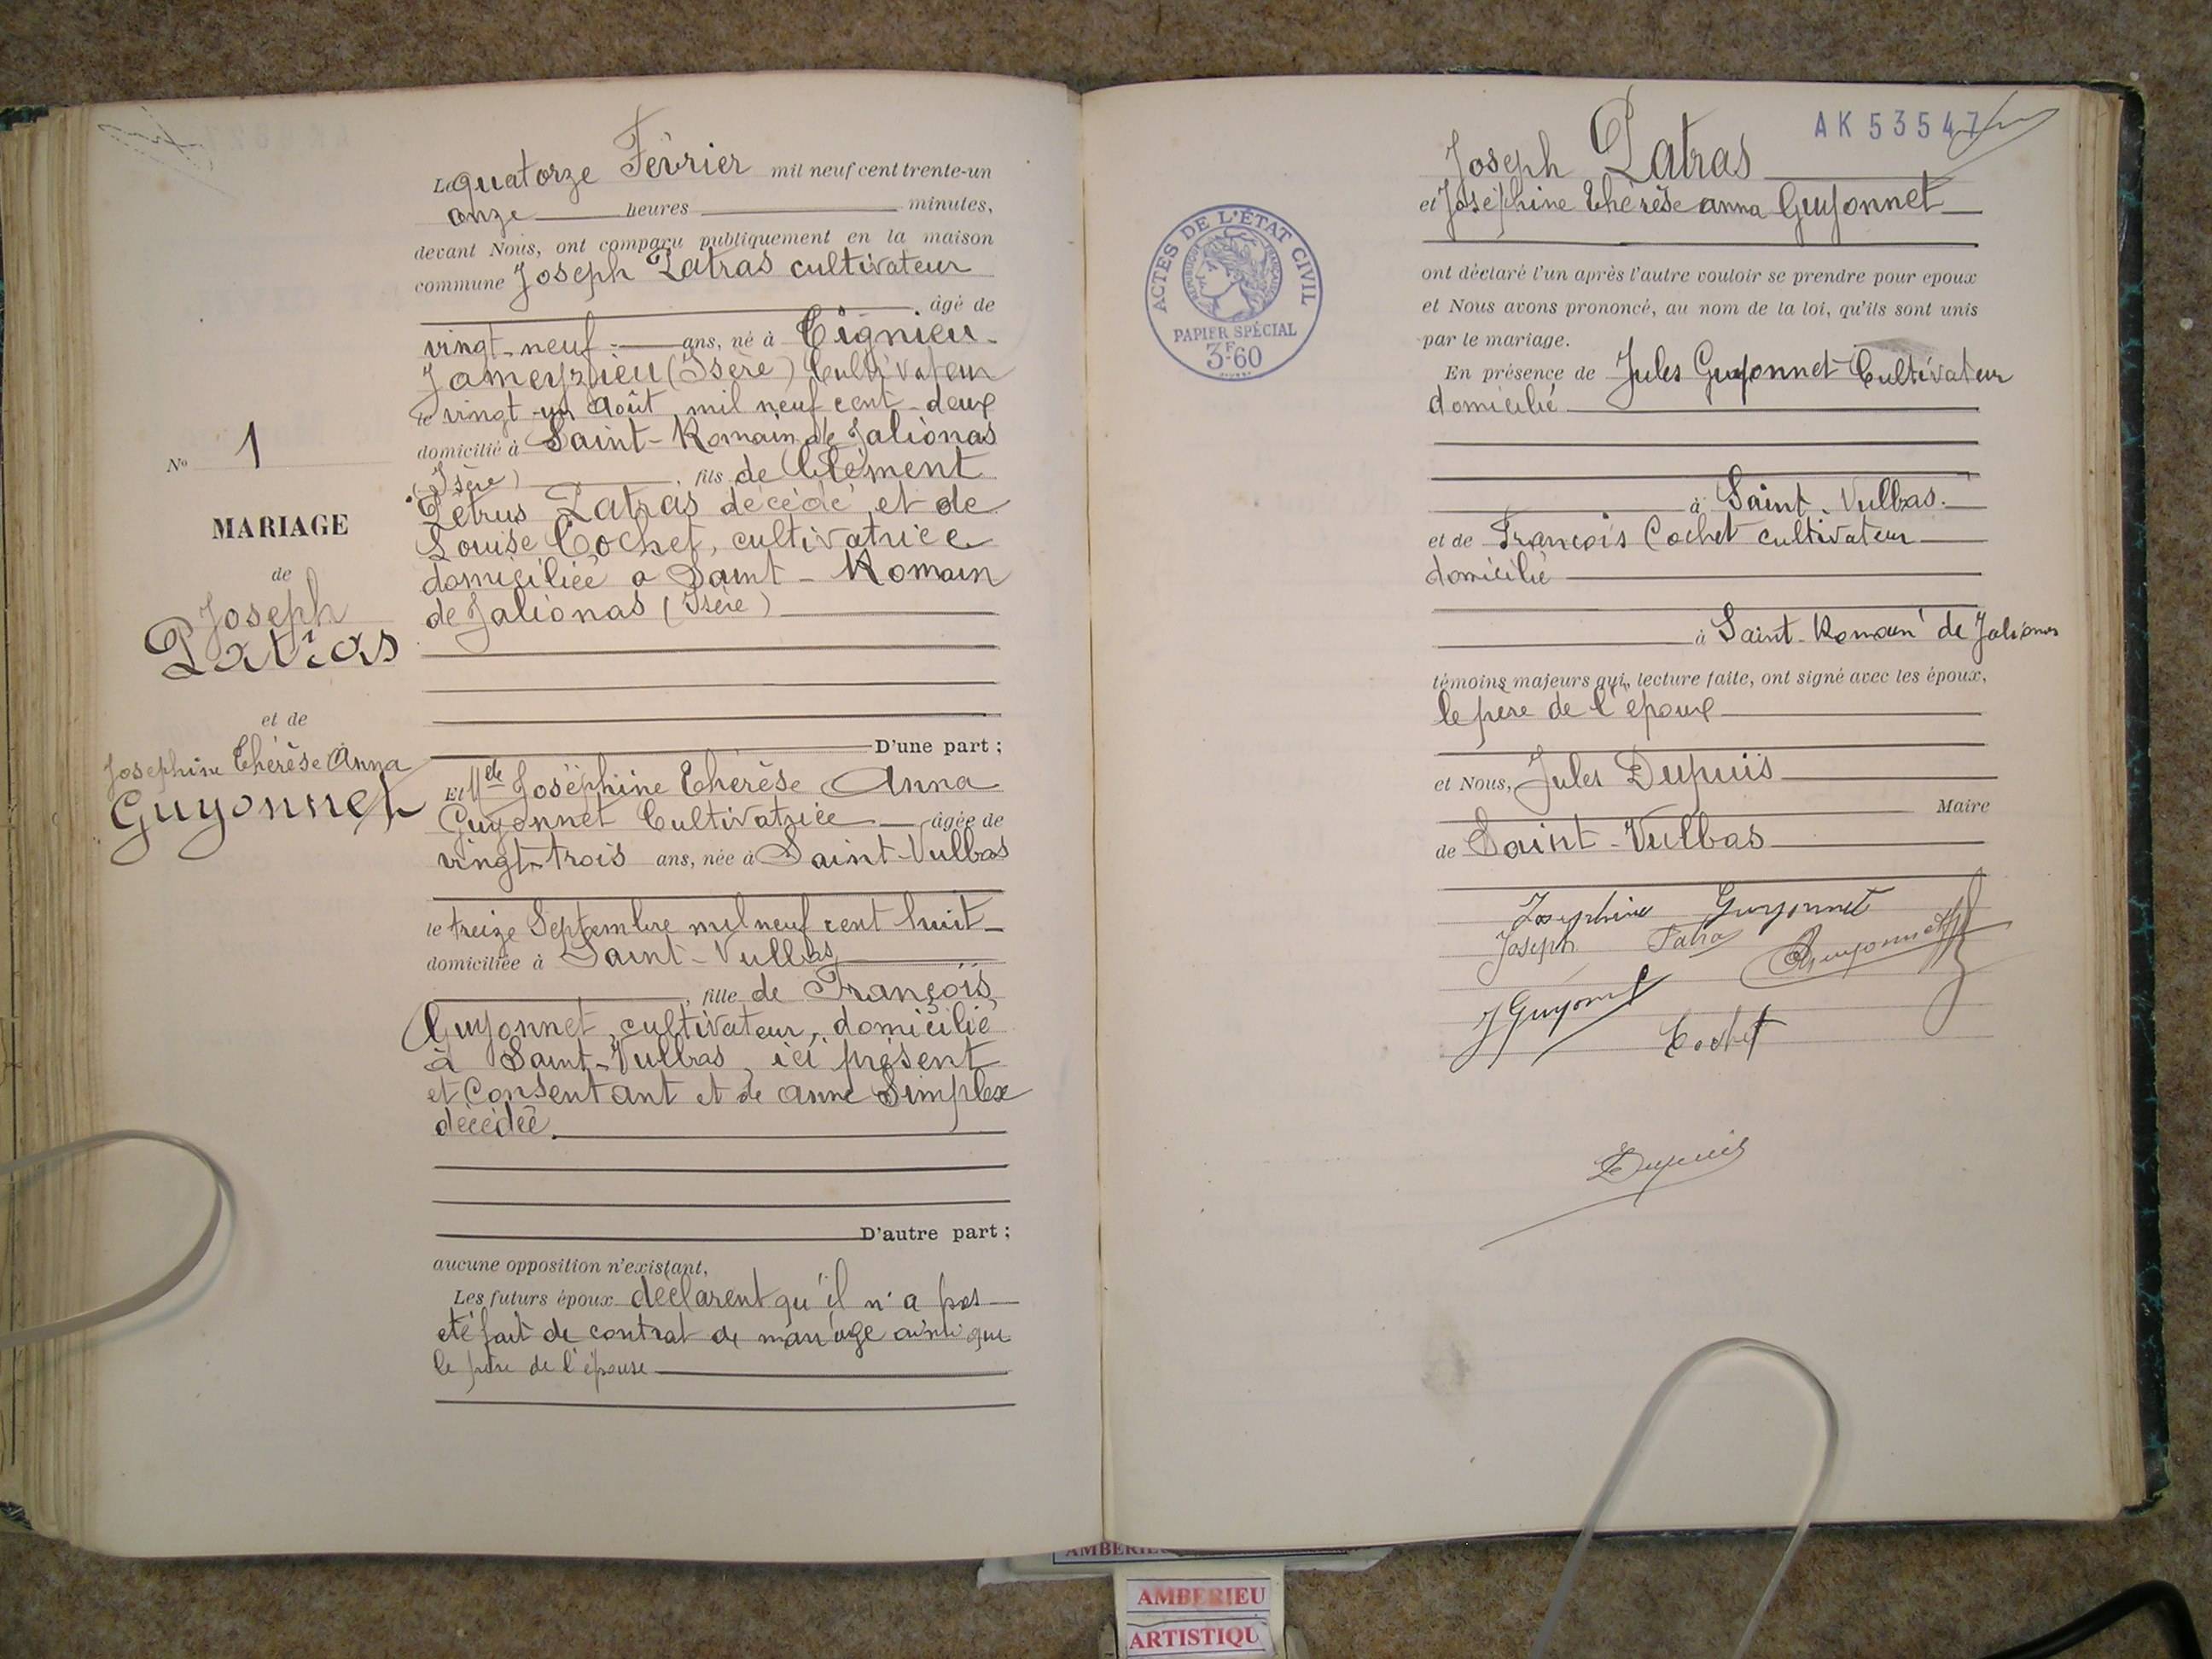 Le quatorze Février mil neuf cent trente-un
onze heures minutes,
devant Nous, ont comparu publiquement en la maison
commune Joseph Patras cultivateur
âgé de
vingt-neuf ans, né à Tignieu-
Jameyzieu (Isère) Cultivateur
le vingt-un Août mil neuf cent-deux
domicilié à Saint-Romain de Jalionas
(Isère), fils de Clément
Pétrus Patras décédé et de
Louise Cochet, cultivatrice
domiciliée a Saint-Romain
de Jalionas (Isère)
D'une part ;
Et Melle Joséphine Thérèse Anna
Guyonnet Cultivatrice âgée de
vingt-trois ans, née à Saint-Vulbas
le treize Septembre mil neuf cent huit
domiciliée à Saint-Vulbas
, fille de François
Guyonnet, cultivateur, domicilié
à Saint-Vulbas, ici présent
et Consentant et de Anne Simplex
décédée.
D'autre part ;
aucune opposition n'existant,
Les futurs époux déclarent qu'il n'a pas
été fait de contrat de mariage ainsi que
le père de l'épouse
No 1
MARIAGE
de
Joseph
Patras
et de
Josephine Thérèse Anna
Guyonnet
AK 53547
Joseph Patras
et Joséphine Thérèse anna Guyonnet
ont déclaré l'un après l'autre vouloir se prendre pour epoux
et Nous avons prononcé, au nom de la loi, qu'ils sont unis
par le mariage.
En présence de Jules Guyonnet Cultivateur
domicilié
à Saint-Vulbas.
et de François Cochet cultivateur
domicilié
à Saint-Romain de Jalionas
témoins majeurs qui, lecture faite, ont signé avec les époux,
le père de l'époux
et Nous, Jules Dupuis
Maire
de Saint-Vulbas
Josephine Guyonnet
Joseph Patras
Guyonnet
J Guyonnet
Cochet
Dupuis
ACTES DE L'ÉTAT CIVIL
RÉPUBLIQUE FRANÇAISE
PAPIER SPÉCIAL
3F.60
AMBERIEU
ARTISTIQU